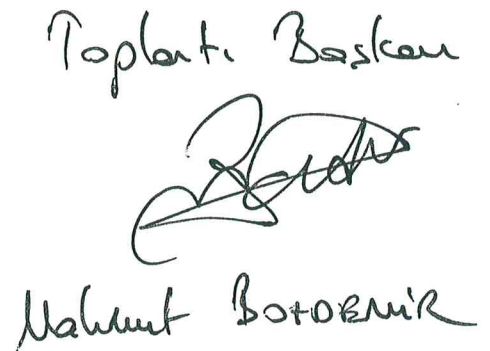 Toplantı Başkanı
Mahmut BOZDEMİR